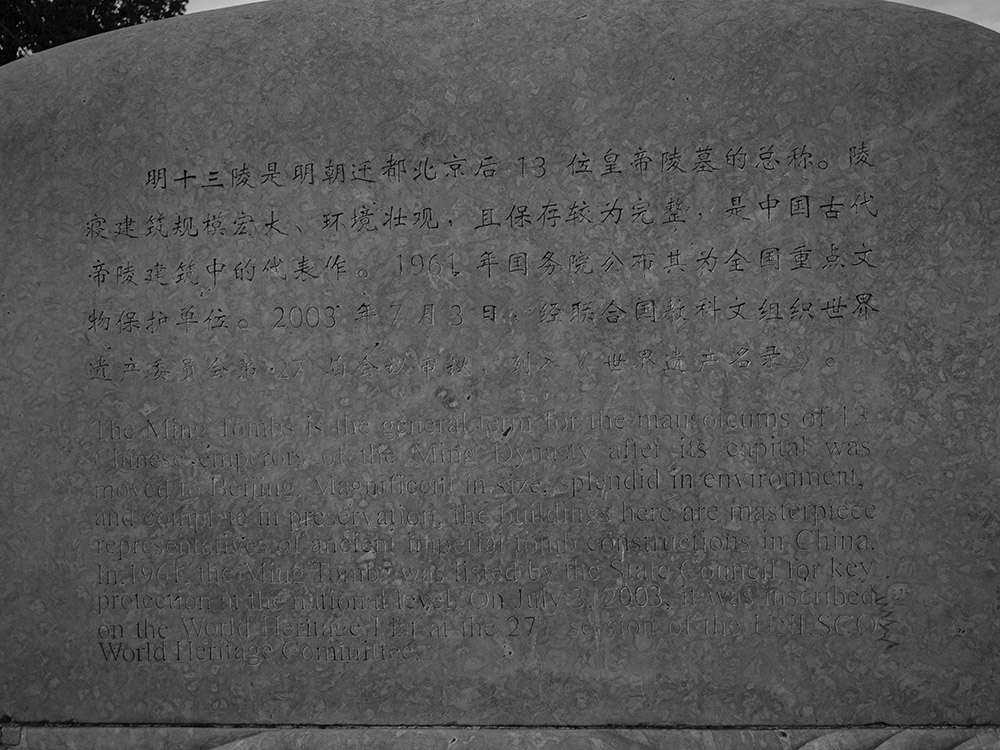 明十三陵是明朝迁都北京后 13 位皇帝陵墓的总称。陵
寝建筑规模宏大、环境壮观，且保存较为完整，是中国古代
帝陵建筑中的代表作。1961 年国务院公布其为全国重点文
物保护单位。2003 年 7 月 3 日，经联合国教科文组织世界
遗产委员会第 27 届会议审议，列入《世界遗产名录》。
The Ming Tombs is the general term for the mausoleums of 13
Chinese emperors of the Ming Dynasty after its capital was
moved to Beijing. Magnificent in size, splendid in environment,
and complete in preservation, the buildings here are masterpiece
representatives of ancient imperial tomb constructions in China.
In 1961, the Ming Tombs was listed by the State Council for key
protection at the national level. On July 3, 2003, it was inscribed
on the World Heritage List at the 27 session of the UNESCO
World Heritage Committee.